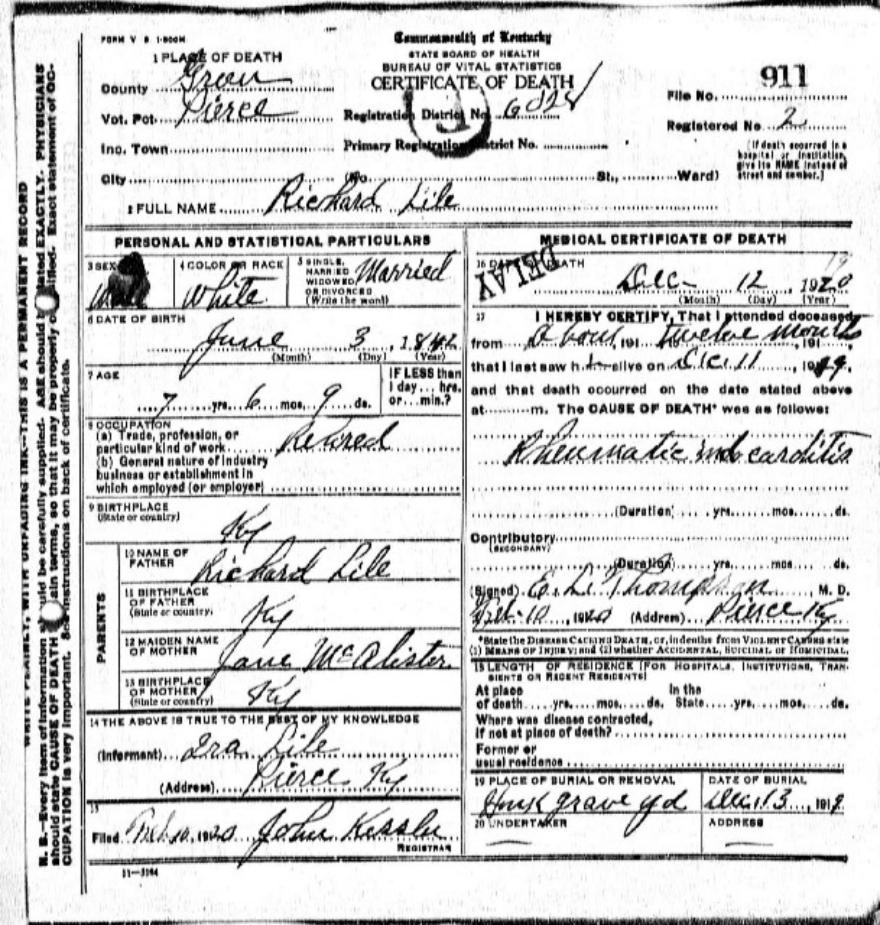 FORM V S 1-500M
Commonwealth of Kentucky
STATE BOARD OF HEALTH
BUREAU OF VITAL STATISTICS
CERTIFICATE OF DEATH
1 PLACE OF DEATH
County Green
Vot. Pct. Pierce
Inc. Town
City (No. St., Ward)
Registration District No. 6028
Primary Registration District No.
File No. 911
Registered No. 2
(If death occurred in a hospital or institution, give its NAME instead of street and number.)
2 FULL NAME Richard Lile
PERSONAL AND STATISTICAL PARTICULARS
3 SEX
4 COLOR OR RACE White
5 SINGLE, MARRIED WIDOWED OR DIVORCED (Write the word) Married
6 DATE OF BIRTH
June 3, 1842
(Month) (Day) (Year)
7 AGE
7 yrs. 6 mos. 9 ds.
IF LESS than 1 day... hrs. or... min.?
8 OCCUPATION
(a) Trade, profession, or particular kind of work Retired
(b) General nature of industry business or establishment in which employed (or employer)
9 BIRTHPLACE
(State or country)
Ky
PARENTS
10 NAME OF FATHER Richard Lile
11 BIRTHPLACE OF FATHER (State or country) Ky
12 MAIDEN NAME OF MOTHER Jane McAlister
13 BIRTHPLACE OF MOTHER (State or country) Ky
14 THE ABOVE IS TRUE TO THE BEST OF MY KNOWLEDGE
(Informant) Ira Lile
(Address) Pierce Ky
15
Filed 10, 1920 John Kessler
REGISTRAR
11—3184
MEDICAL CERTIFICATE OF DEATH
DELAY
16 DATE OF DEATH
19
Dec 12, 1920
(Month) (Day) (Year)
17 I HEREBY CERTIFY, That I attended deceased
from About 191 twelve months 191
that I last saw h alive on Dec. 11, 1919.
and that death occurred on the date stated above
at m. The CAUSE OF DEATH* was as follows:
Rheumatic endocarditis
(Duration) yrs. mos. ds.
Contributory
(SECONDARY)
(Duration) yrs. mos. ds.
(Signed) E. L. Thompson M. D.
Feb. 10, 1920 (Address) Pierce Ky
*State the DISEASE CAUSING DEATH, or, in deaths from VIOLENT CAUSES state
(1) MEANS OF INJURY; and (2) whether ACCIDENTAL, SUICIDAL or HOMICIDAL.
18 LENGTH OF RESIDENCE (FOR HOSPITALS, INSTITUTIONS, TRANSIENTS OR RECENT RESIDENTS)
At place of death yrs. mos. ds. In the State yrs. mos. ds.
Where was disease contracted,
if not at place of death?
Former or
usual residence
19 PLACE OF BURIAL OR REMOVAL
grave yd
DATE OF BURIAL
Dec. 13, 1919
20 UNDERTAKER
ADDRESS
WRITE PLAINLY, WITH UNFADING INK—THIS IS A PERMANENT RECORD
N. B.—Every item of information should be carefully supplied. AGE should be stated EXACTLY. PHYSICIANS
should state CAUSE OF DEATH in plain terms, so that it may be properly classified. Exact statement of OC-
CUPATION is very important. See instructions on back of certificate.